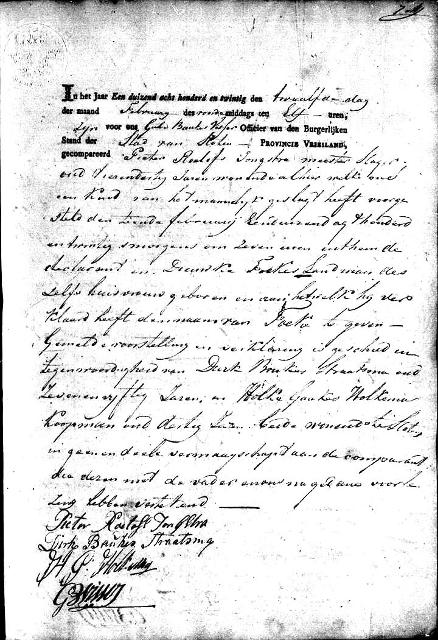 In het Jaar Een duizend acht honderd en twintig den twaalfden dag
der maand February des voormiddags ten Elf uren,
Zyn voor ons Officier van den Burgerlijken
Stand der Stad van Sloten PROVINCIE VRIESLAND,
gecompareerd Pieter Roelofs Jongstra meester Slager
oud Jaren wonende alhier welke ons
een Kind van het mannelyk geslagt heeft voorge
steld den tiende february achthonderd
en twintig smorgens om Zeven uren uit hem de
declarant en Douwske Fokes Landman des
Zelfs huisvrouw geboren en aan hetwelk hy ver
klaard heeft den naam van Foeke te geven
Gemelde voorstelling en verklaring is geschied in
tegenwoordigheid van Dirk Baukes Straatsma oud
Zeven en vyftig Jaren, en Wolke Gaukes Wolkema
Koopman oud dertig Jaren beide wonende te Sloten
in geenen deele vermaagschapt aan de comparant
die dezen met de vader en ons na gedane voorle
zing hebben getekend
Pieter Roelofs Jongstra
Dirk Baukes Straatsma